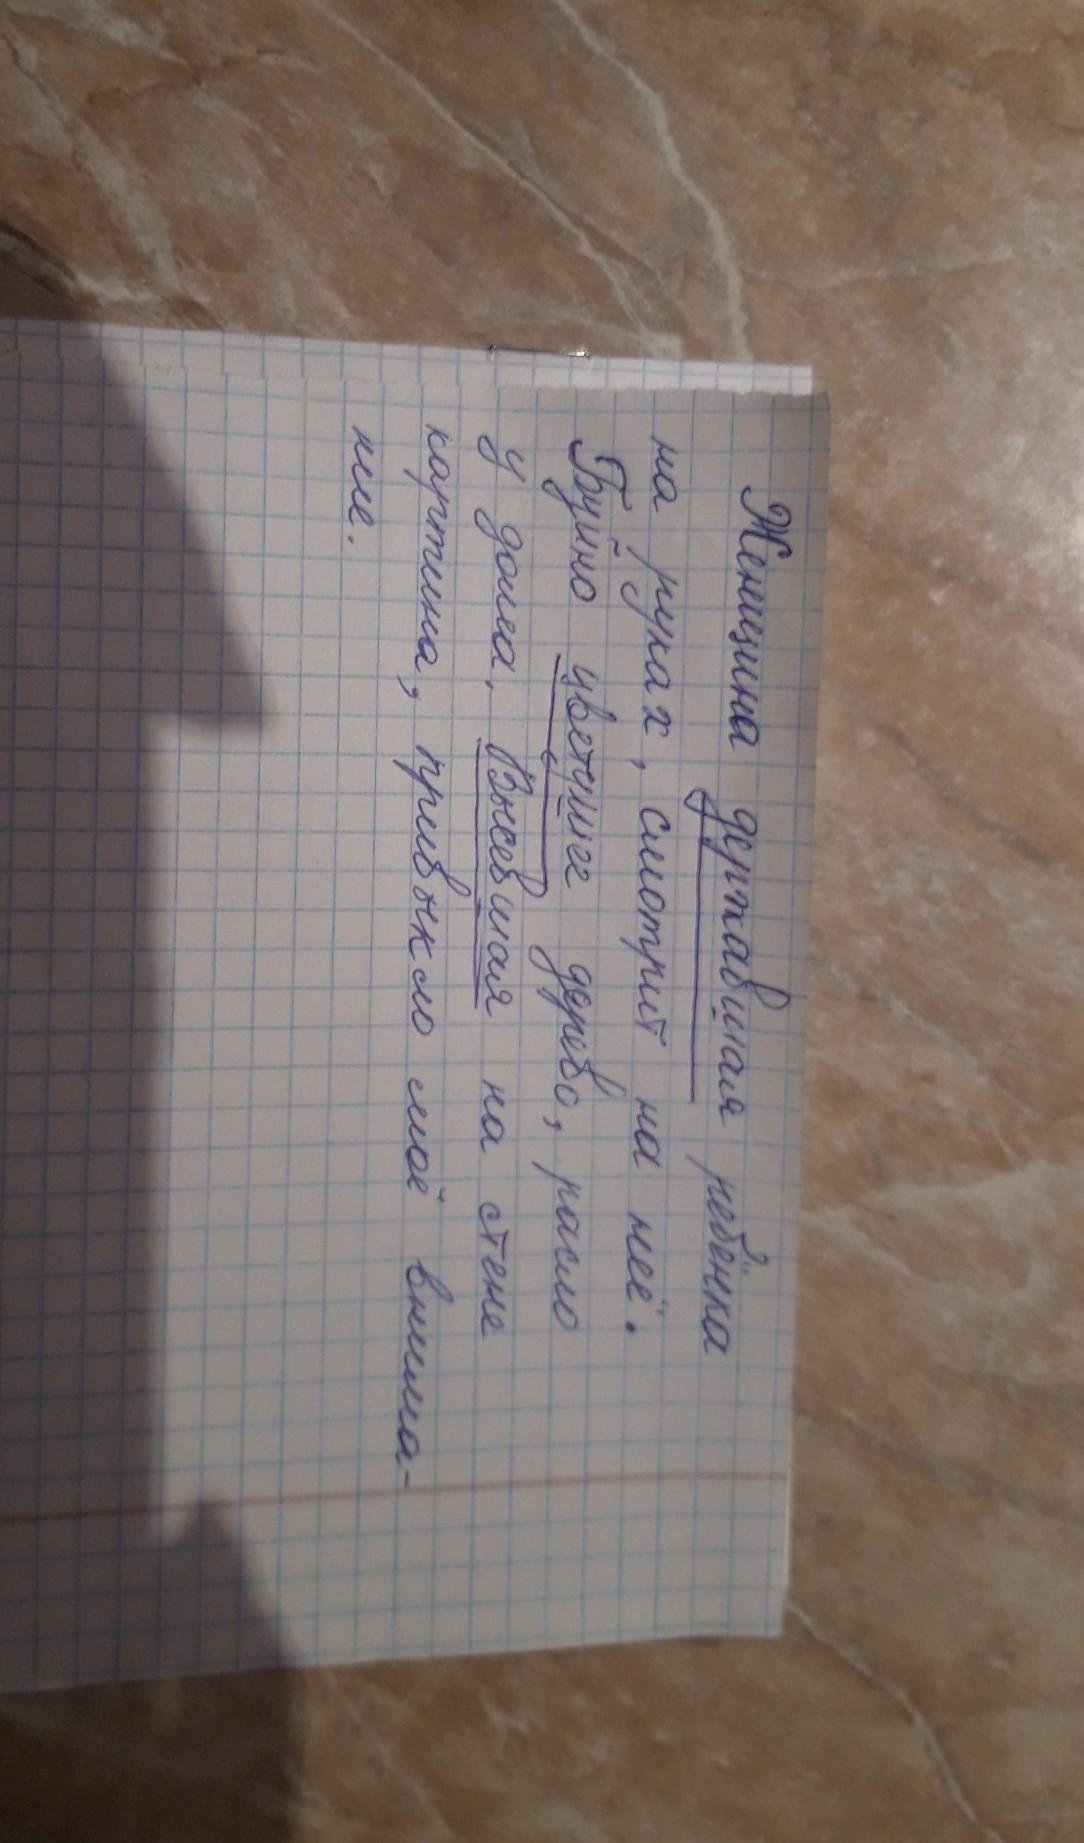 Женщина державшая ребёнка
на руках, смотрит на неё.
Буйно цветшее дерево, расло
у дома, Висевшая на стене
картина, привыкло моё внима-
ние.